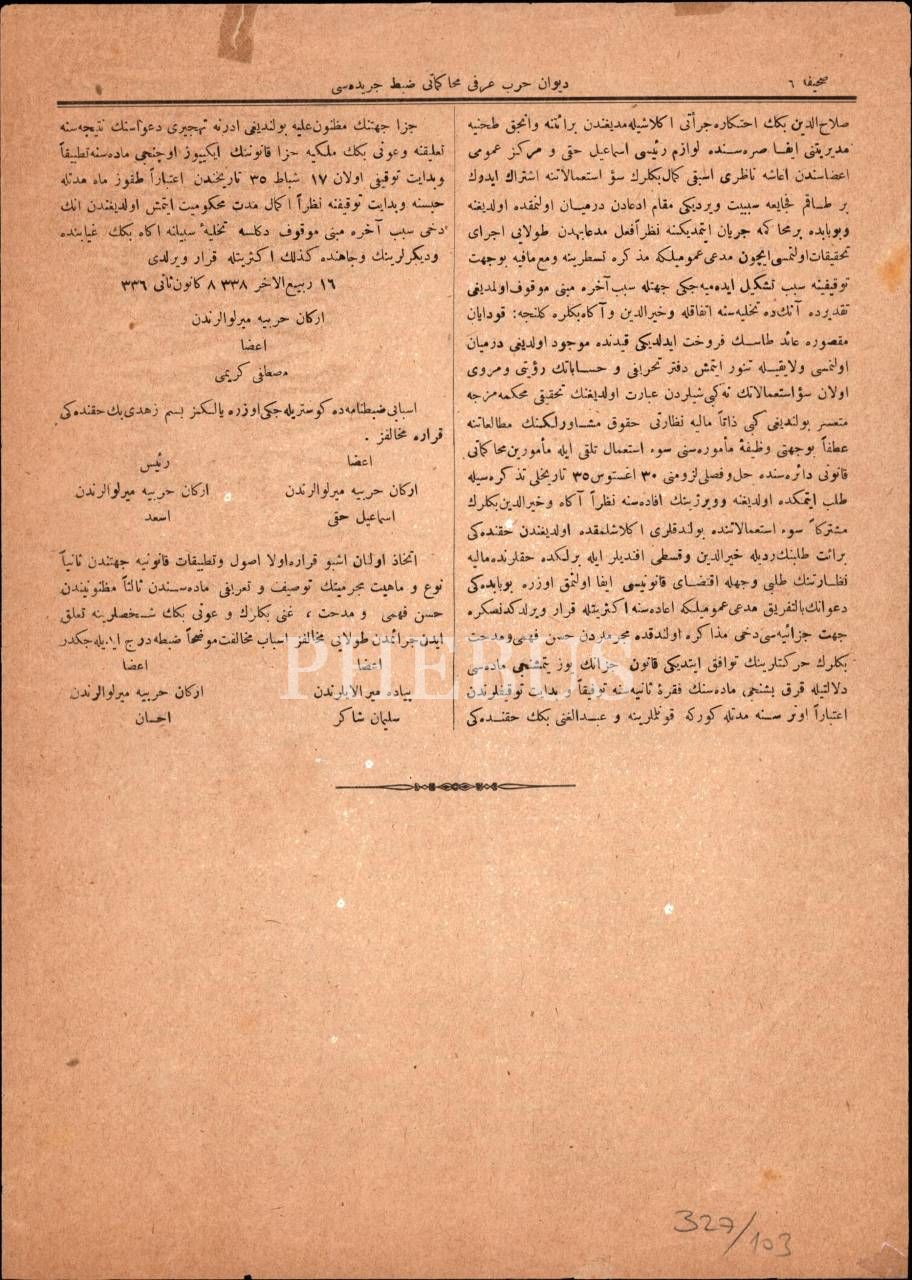 صحیفه ٦
دیوان حرب عرفی محاكماتی ضبط جریده‌سی
صلاح‌الدین بكك احتكاره جرأتی اكلاشیله‌مدیغندن برائتنه وانجق طحنیه
مدیریتنی ایفا صره‌سنده لوازم رئیسی اسماعیل حقی و مركز عمومی
اعضاسندن اعاشه ناظری اسبقی كمال بكلرك سؤ استعمالاتنه اشتراك ایدرك
بر طاقم فجایعه سببیت ویردیكی مقام ادعادن درمیان اولنمقده اولدیغنه
وبوبابده برمحاكمه جریان ایتمدیكنه نظراً فعل مدعابهدن طولایی اجرای
تحقیقات اولنمسی ایچون مدعی عمومیلكه مذكره تسطیرینه ومع‌مافیه بوجهت
توقیفنه سبب تشكیل ایده‌میه‌جكی جهتله سبب آخره مبنی موقوف اولمدیغی
تقدیرده آنك‌ده تخلیه‌سنه اتفاقله وخیرالدین و آكاه بكلره كلنجه: قودایان
مقصوره عائد طاسك فروخت ایدلدیكی قیدنده موجود اولدیغی درمیان
اولنمسی ولایقیله تنور ایتمش دفتر تحریفی و حساباتك رؤیتی ومروی
اولان سؤاستعمالاتك نه كبی شیلردن عبارت اولدیغنك تحقیقی محكمه‌مزجه
متعسر بولندیغی كبی ذاتاً مالیه نظارتی حقوق مشاورلكنك مطالعاتنه
عطفاً بوجهتی وظیفۀ مأموره‌سنی سوء استعمال تلقی ایله مأمورین محاكماتی
قانونی دائره‌سنده حل‌وفصلی لزومنی ٣٠ اغستوس ٣٥ تاریخلی تذكره‌سیله
طلب ایتمكده اولدیغنه وویرژینك افاده‌سنه نظراً آكاه وخیرالدین بكلرك
مشتركاً سوء استعمالاتنده بولندقلری اكلاشلمقده اولدیغندن حقنده‌كی
برائت طلبنك ردیله خیرالدین وقسطی افندیلر ایله برلكده حقلرنده مالیه
نظارتنك طلبی وجهله اقتضای قانونیسی ایفا اولنمق اوزره بوبابده‌كی
دعوانك بالتفریق مدعی عمومیلكه اعاده‌سنه اكثریتله قرار ویرلدكدنصكره
جهت جزائیه‌سی دخی مذاكره اولندقده مجرملردن حسن فهمی و مدحت
بكلرك حركتلرینك توافق ایتدیكی قانون جزانك یوز یتمشنجی ماده‌سی
دلالتیله قرق بشنجی ماده‌سنك فقرۀ ثانیه‌سنه توفیقاً و بدایت توقیفلرندن
اعتباراً اونر سنه مدتله كوركه قونلملرینه و عبدالغنی بكك حقنده‌كی
جزا جهتنك مظنون علیه بولندیغی ادرنه تهجیری دعواسنك نتیجه‌سنه
تعلیقنه وعونی بكك ملكیه جزا قانوننك ایكییوز اوچنجی ماده‌سنه تطبیقاً
وبدایت توقیفی اولان ١٧ شباط ٣٥ تاریخندن اعتباراً طقوز ماه مدتله
حبسنه وبدایت توقیفنه نظراً اكمال مدت محكومیت ایتمش اولدیغندن آنك
دخی سبب آخره مبنی موقوف دكلسه تخلیۀ سبیلنه آكاه بكك غیابنده
ودیكرلرینك وجاهنده كذلك اكثریتله قرار ویرلدی
١٦ ربیع‌الآخر ٣٣٨ ٨ كانون ثانی ٣٣٦
اركان حربیه میرلوالرندن
اعضا
مصطفی كریمی
اسبابی ضبطنامه‌ده كوستریله‌جكی اوزره یالكز بسم زهدی بك حقنده‌كی
قراره مخالفز .
اعضا رئیس
اركان حربیه میرلوالرندن اركان حربیه میرلوالرندن
اسماعیل حقی اسعد
اتخاذ اولنان اشبو قراره اولا اصول و تطبیقات قانونیه جهتندن ثانیاً
نوع و ماهیت مجرمیتك توصیف و تعریفی ماده‌سندن ثالثاً مظنونیندن
حسن فهمی و مدحت ، غنی بكلرك و عونی بكك شخصلرینه تعلق
ایدن جرائدن طولایی مخالفز اسباب مخالفت موضحاً ضبطه درج ایدیله‌جكدر
اعضا اعضا
پیاده میرالایلرندن اركان حربیه میرلوالرندن
سلیمان شاكر احسان
PHEBUS
327/103